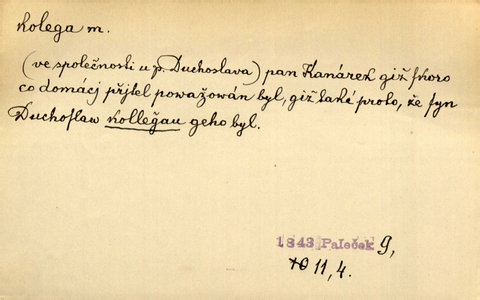 kolega m.
(ve společnosti u p. Duchoslava) pan Kanárek giž skoro
co domácj přjtel považowán byl, giž také proto, že syn
Duchoslaw kolleğau geho byl.
1843 Paleček 9,
11, 4.